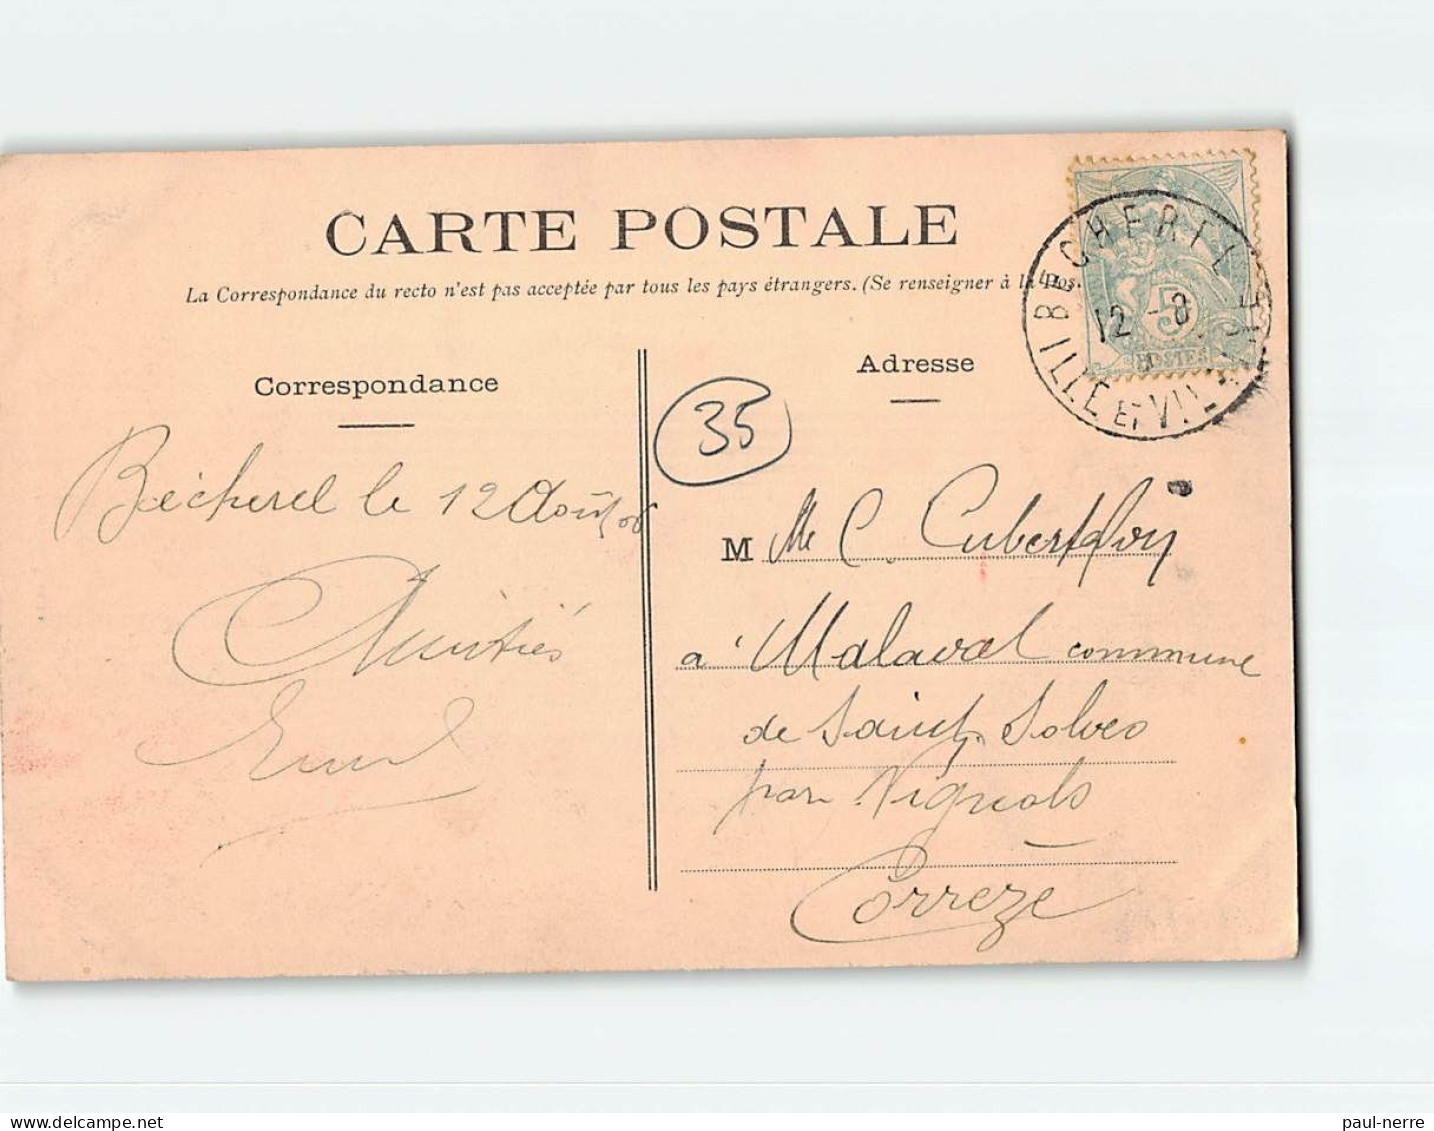 CARTE POSTALE
La Correspondance du recto n'est pas acceptée par tous les pays étrangers. (Se renseigner à la
Correspondance
Adresse
BECHEREL
12 - 8
ILLE ET VILAINE
5
POSTES
35
Bécherel le 12 Août 06
Amitiés
M Me C. Cubertafon
à Malaval commune
de Saint Solves
par Vignols
Correze
paul-nerre